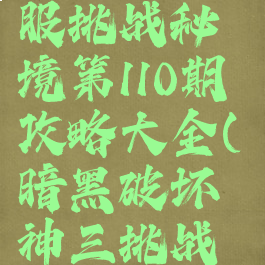 服挑战秘
境第110期
攻略大全(
暗黑破坏
神三挑战